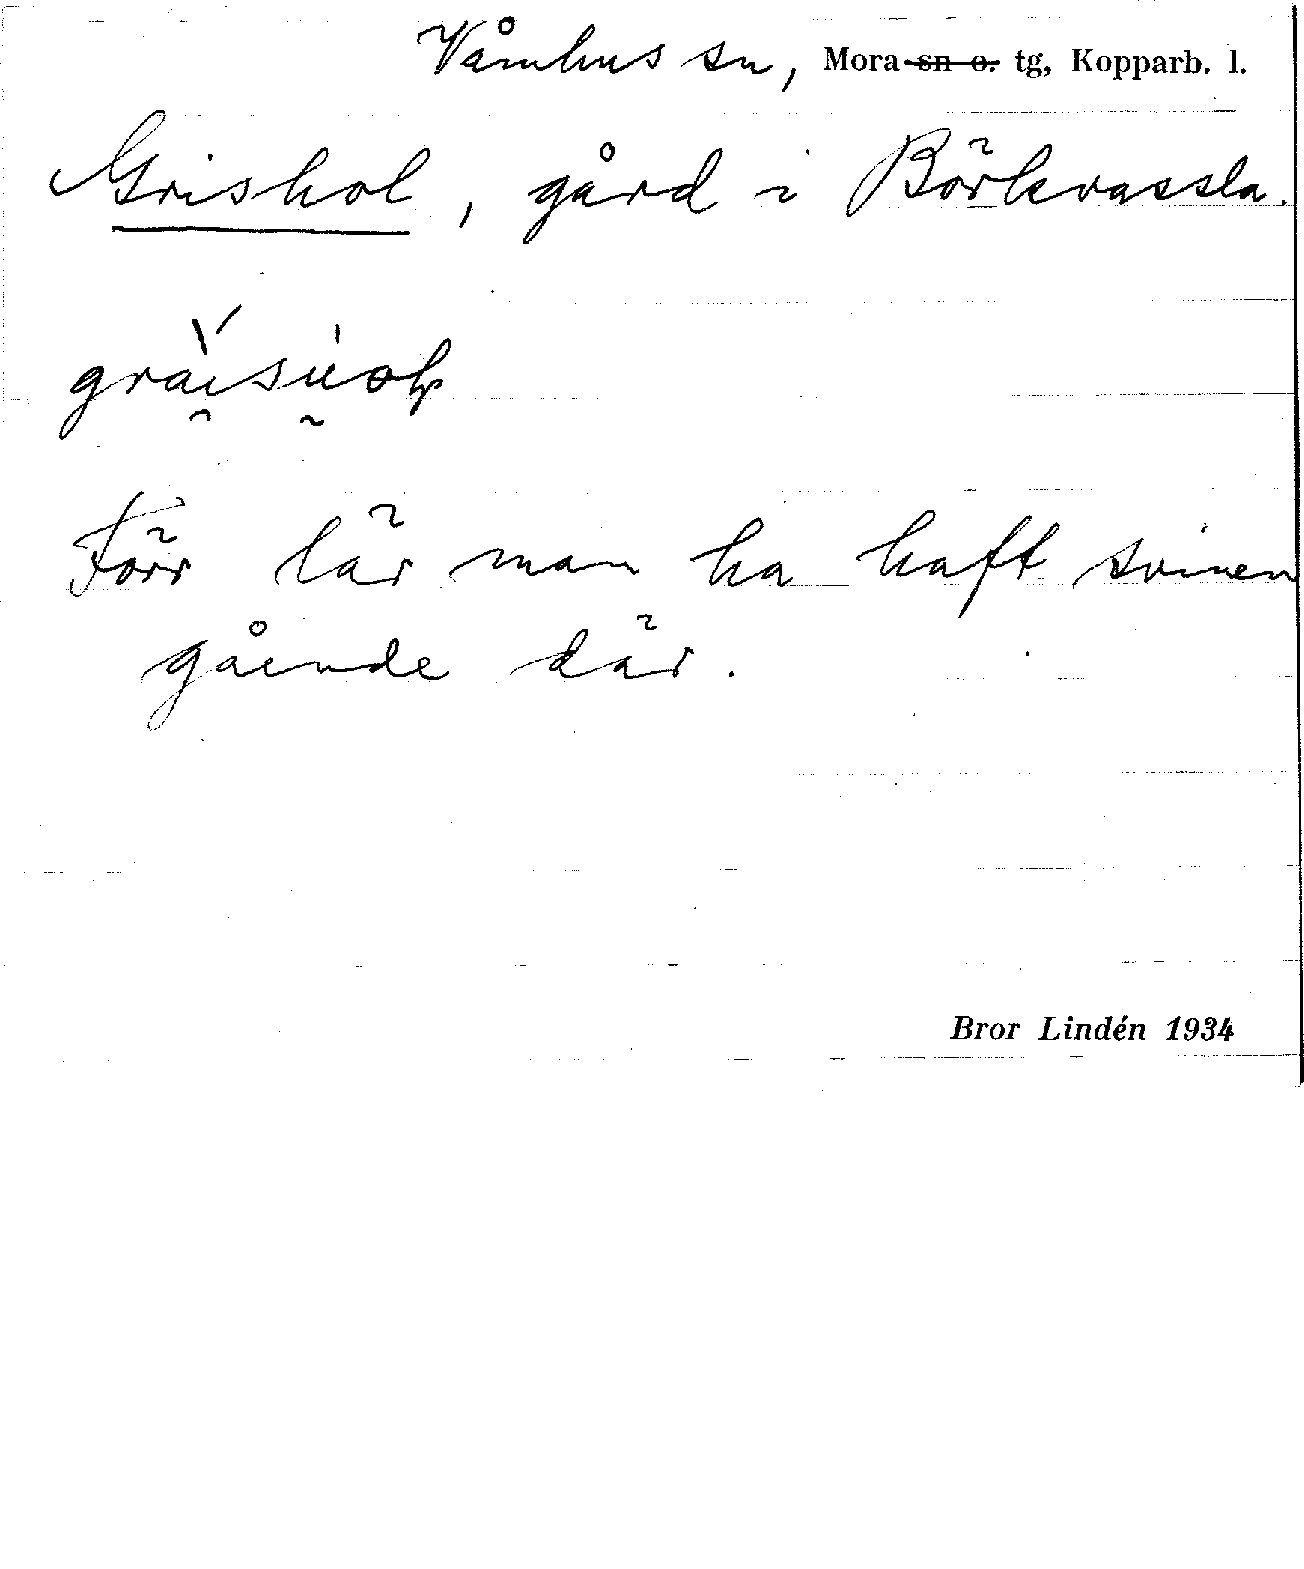 Våmhus sn, Mora sn o. tg, Kopparb. l.
Grishol, gård i Börkvassla.
Förr lär man ha haft svinen
gående där.
Bror Lindén 1934